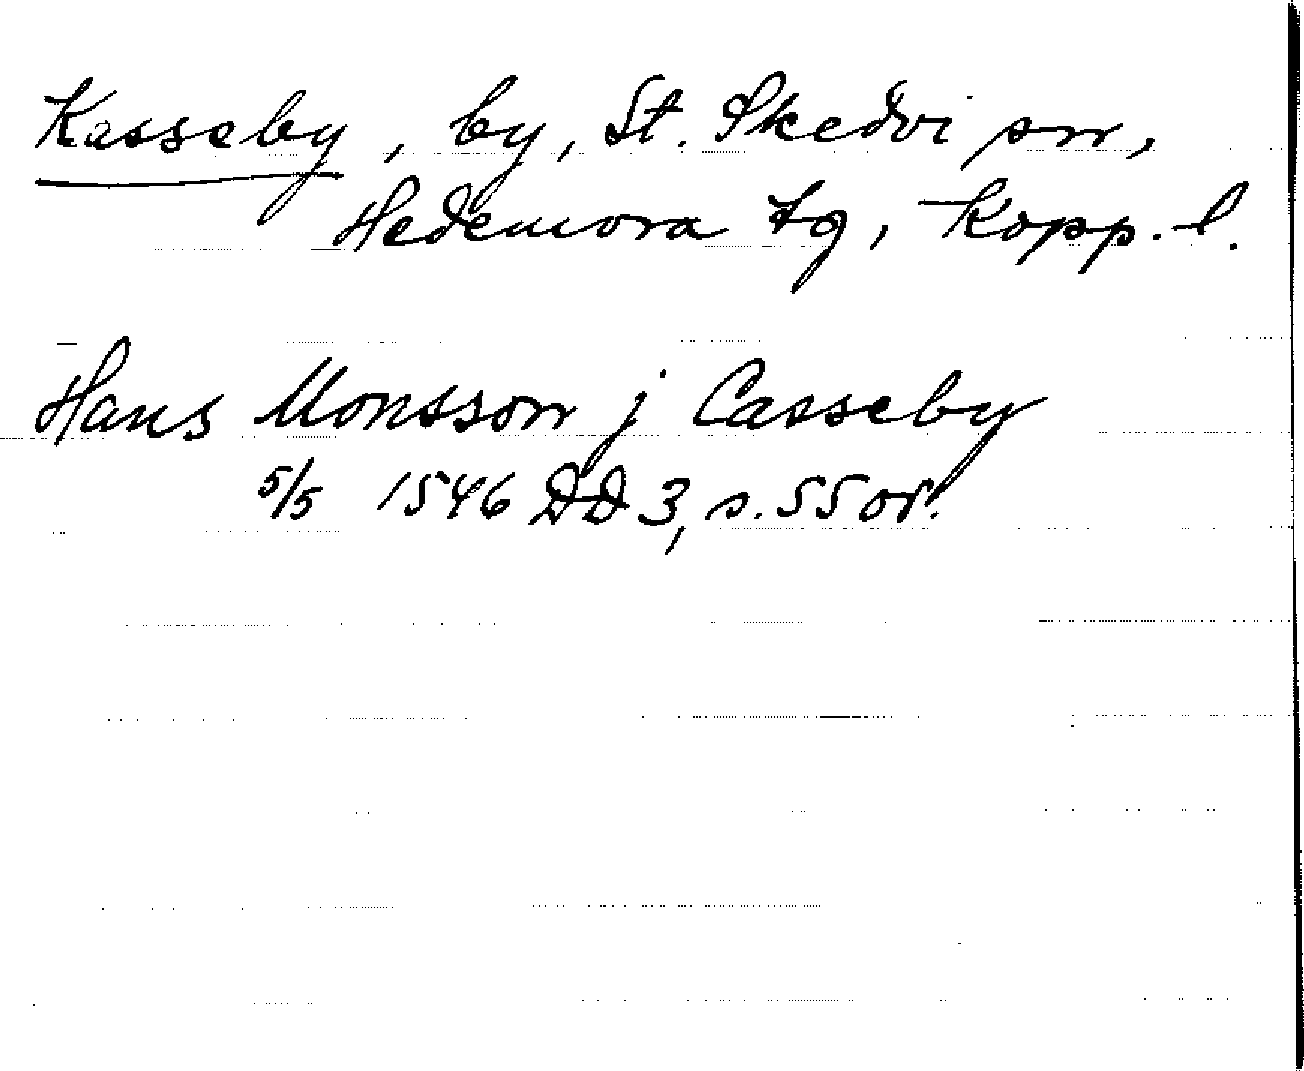 Kasseby, by, St. Skedvi sn,
Hedemora tg, Kopp. l.
Hans Monsson j Casseby
5/5 1546 DD 3, s. 55 or.